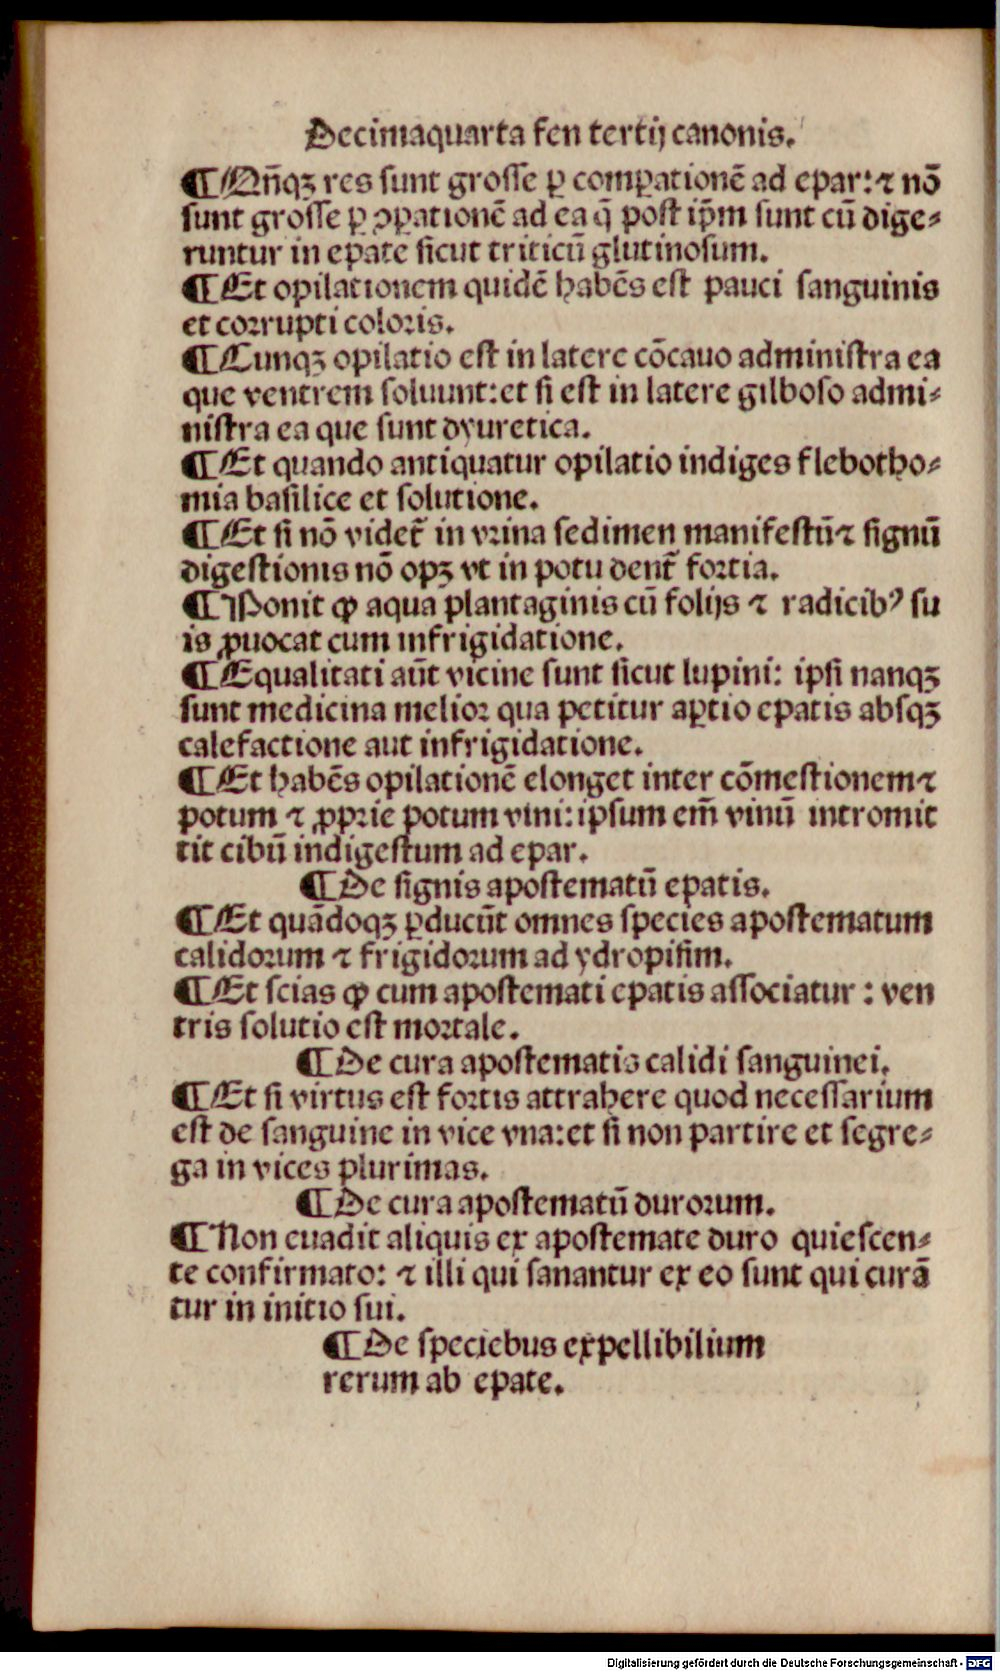 Decimaquarta fen tertij canonis.
¶ Qñqꝫ res sunt grosse ꝑ comꝑationē ad epar: ⁊ nō
sunt grosse ꝑ ↄꝑationē ad ea q̄ post ip̄m sunt cū dige⸗
runtur in epate sicut triticū glutinosum.
¶ Et opilationem quidē habēs est pauci sanguinis
et corrupti coloris.
¶ Cunqꝫ opilatio est in latere cōcauo administra ea
que ventrem soluunt: et si est in latere gilboso admi⸗
nistra ea que sunt dyuretica.
¶ Et quando antiquatur opilatio indiges flebotho⸗
mia basilice et solutione.
¶ Et si nō videt̄ in vrina sedimen manifestū ⁊ signū
digestionis nō opꝫ vt in potu dent̄ fortia.
¶ Ponit ꝙ aqua plantaginis cū folijs ⁊ radicibꝰ su
is ꝓuocat cum infrigidatione.
¶ Equalitati aūt vicine sunt sicut lupini: ipsi nanqꝫ
sunt medicina melior qua petitur aꝑtio epatis absqꝫ
calefactione aut infrigidatione.
¶ Et habēs opilationē elonget inter cōmestionem ⁊
potum ⁊ ꝓprie potum vini: ipsum em̄ vinū intromit
tit cibū indigestum ad epar.
¶ De signis apostematū epatis.
¶ Et quādoqꝫ ꝑducūt omnes species apostematum
calidorum ⁊ frigidorum ad ydropisim.
¶ Et scias ꝙ cum apostemati epatis associatur : ven
tris solutio est mortale.
¶ De cura apostematis calidi sanguinei.
¶ Et si virtus est fortis attrahere quod necessarium
est de sanguine in vice vna: et si non partire et segre⸗
ga in vices plurimas.
¶ De cura apostematū durorum.
¶ Non euadit aliquis ex apostemate duro quiescen⸗
te confirmato: ⁊ illi qui sanantur ex eo sunt qui curā
tur in initio sui.
¶ De speciebus expellibilium
rerum ab epate.
Digitalisierung gefördert durch die Deutsche Forschungsgemeinschaft - DFG